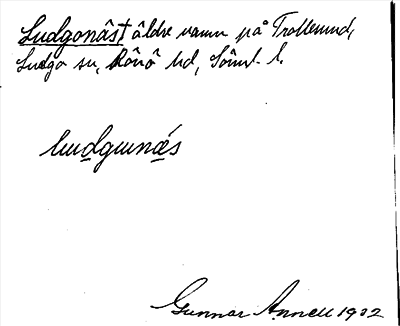 Ludgonäs† äldre namn på Trollesund,
Ludgo sn, Rönö hd, Söml. l.
Gunnar Annell 1932